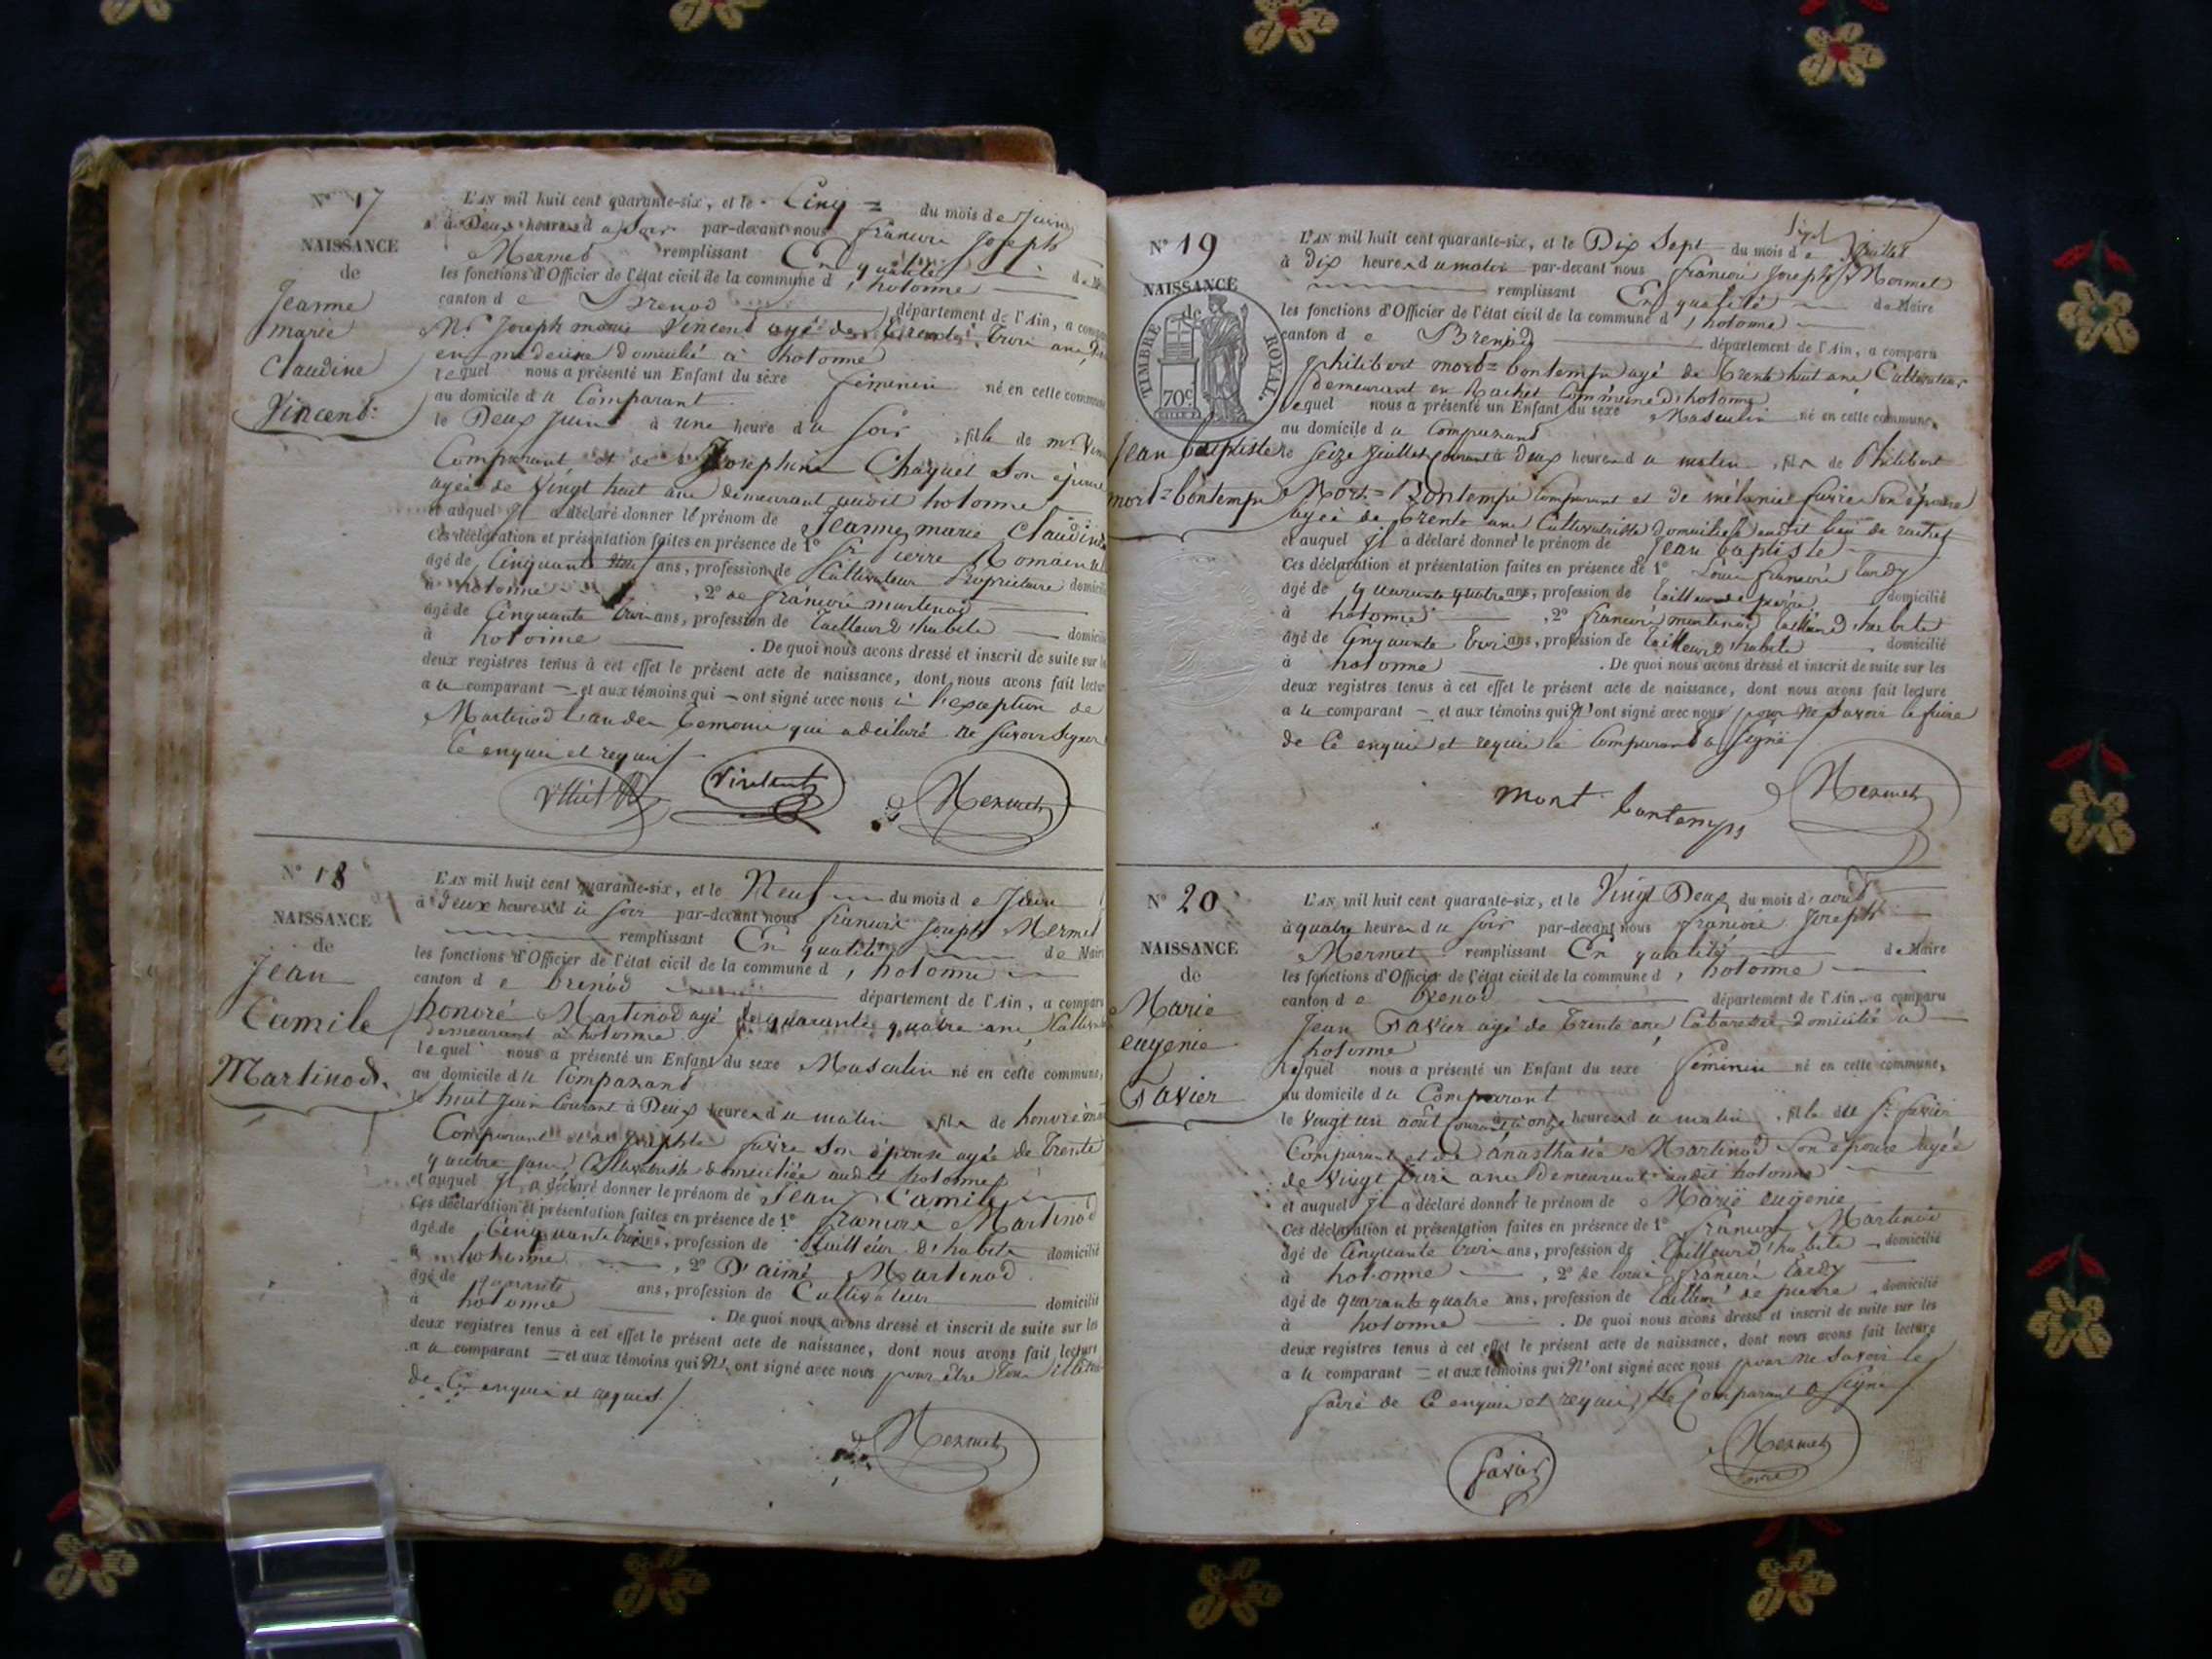 N° 17
NAISSANCE
de
Jeanne
marie
Claudine
Vincent
L'AN mil huit cent quarante-six, et le Cinq = du mois de Juin
à Deux heures du Soir par-devant nous françois Joseph
Mermet remplissant En qualité de
les fonctions d'Officier de l'état civil de la commune d'hotonne
canton de Brenod département de l'Ain, a
Mr. Joseph marie Vincent agé de trente trois ans
en medecine domicilié à hotonne
lequel nous a présenté un Enfant du sexe féminin né en cette commune
au domicile du Comparant
le Deux Juin à une heure du soir, fille de mr
Comparant et de Josephine Chaquet son épouse
agée de Vingt huit ans demeurant audit hotonne
et auquel Il a déclaré donner le prénom de Jeanne marie Claudine
Ces déclaration et présentation faites en présence de 1° Sr Pierre Romain
âgé de Cinquante ans, profession de Cultivateur Propriétaire
à hotonne, 2° de françois martinod
âgé de Cinquante trois ans, profession de tailleur d'habits
à hotonne. De quoi nous avons dressé et inscrit de suite sur
deux registres tenus à cet effet le présent acte de naissance, dont nous avons fait
au comparant et aux témoins qui ont signé avec nous à l'exception de
Martinod l'un des temoins qui a déclaré ne savoir signer
de ce enquis et requis
Vincent Mermet
N° 18
NAISSANCE
de
Jean
Camile
Martinod
L'AN mil huit cent quarante-six, et le Neuf du mois de Juin
à Deux heures du soir par-devant nous françois Joseph Mermet
remplissant En qualité de Maire
les fonctions d'Officier de l'état civil de la commune d'hotonne
canton de brenod département de l'Ain, a comparu
honoré Martinod agé de quarante quatre ans
demeurant à hotonne
lequel nous a présenté un Enfant du sexe Masculin né en cette commune,
au domicile du Comparant
le huit Juin Courant à Deux heures du matin, fils de honoré
Comparant et de Josephte favre son épouse agée de trente
quatre ans Cultivatrice domiciliée audit hotonne
et auquel Il a déclaré donner le prénom de Jean Camile
Ces déclaration et présentation faites en présence de 1° françois Martinod
âgé de Cinquante trois ans, profession de tailleur d'habits domicilié
à hotonne, 2° D'aimé Martinod
âgé de quarante ans, profession de Cultivateur
à hotonne domicilié
. De quoi nous avons dressé et inscrit de suite sur les
deux registres tenus à cet effet le présent acte de naissance, dont nous avons fait lecture
au comparant = et aux témoins qui N'ont signé avec nous pour être tous
de Ce enquis et requis
Mermet
N° 19
NAISSANCE
de
TIMBRE ROYAL.
70c
Jean baptiste
mort=bontemps
L'AN mil huit cent quarante-six, et le Dix Sept du mois de Juillet
à Dix heures du matin par-devant nous françois Joseph Mermet
remplissant En qualité de Maire
les fonctions d'Officier de l'état civil de la commune d'hotonne
canton de Brenod département de l'Ain, a comparu
philibert mort=bontemps agé de trente huit ans Cultivateur
demeurant en Rachet Commune d'hotonne
lequel nous a présenté un Enfant du sexe Masculin né en cette commune.
au domicile du Comparant
le seize Juillet courant à Deux heures du matin, fils de Philibert
Mort=Bontemps Comparant et de mélanie favre son épouse
agée de trente ans Cultivatrice domiciliée audit lieu de rachet
et auquel Il a déclaré donner le prénom de Jean baptiste
Ces déclaration et présentation faites en présence de 1° Louis françois tardy
âgé de quarante quatre ans, profession de tailleur de pierre domicilié
à hotonne, 2° françois martinod tailleur d'habits
âgé de Cinquante trois ans, profession de tailleur d'habits domicilié
à hotonne. De quoi nous avons dressé et inscrit de suite sur les
deux registres tenus à cet effet le présent acte de naissance, dont nous avons fait lecture
au comparant et aux témoins qui N'ont signé avec nous pour ne savoir le faire
de Ce enquis et requis le Comparant a signé
mort bontemps Mermet
N° 20
NAISSANCE
de
Marie
eugenie
Favier
L'AN mil huit cent quarante-six, et le Vingt Deux du mois d'août
à quatre heures du soir par-devant nous françois Joseph
Mermet remplissant En qualité de Maire
les fonctions d'Officier de l'état civil de la commune d'hotonne
canton de brenod département de l'Ain, a comparu
Jean Favier agé de trente ans Cabaretier domicilié à
hotonne
lequel nous a présenté un Enfant du sexe féminin né en cette commune,
au domicile du Comparant
le Vingt un août Courant à onze heures du matin, fille du Sr favier
Comparant et de anasthasie Martinod son épouse agée
de Vingt trois ans demeurant audit hotonne
et auquel Il a déclaré donner le prénom de Marie eugenie
Ces déclaration et présentation faites en présence de 1° françois Martinod
âgé de Cinquante trois ans, profession de tailleur d'habits domicilié
à hotonne, 2° de louis françois tardy
âgé de quarante quatre ans, profession de tailleur de pierre, domicilié
à hotonne. De quoi nous avons dressé et inscrit de suite sur les
deux registres tenus à cet effet le présent acte de naissance, dont nous avons fait lecture
au comparant = et aux témoins qui N'ont signé avec nous pour ne savoir le
faire de Ce enquis et requis, Le Comparant a signé
favier Mermet